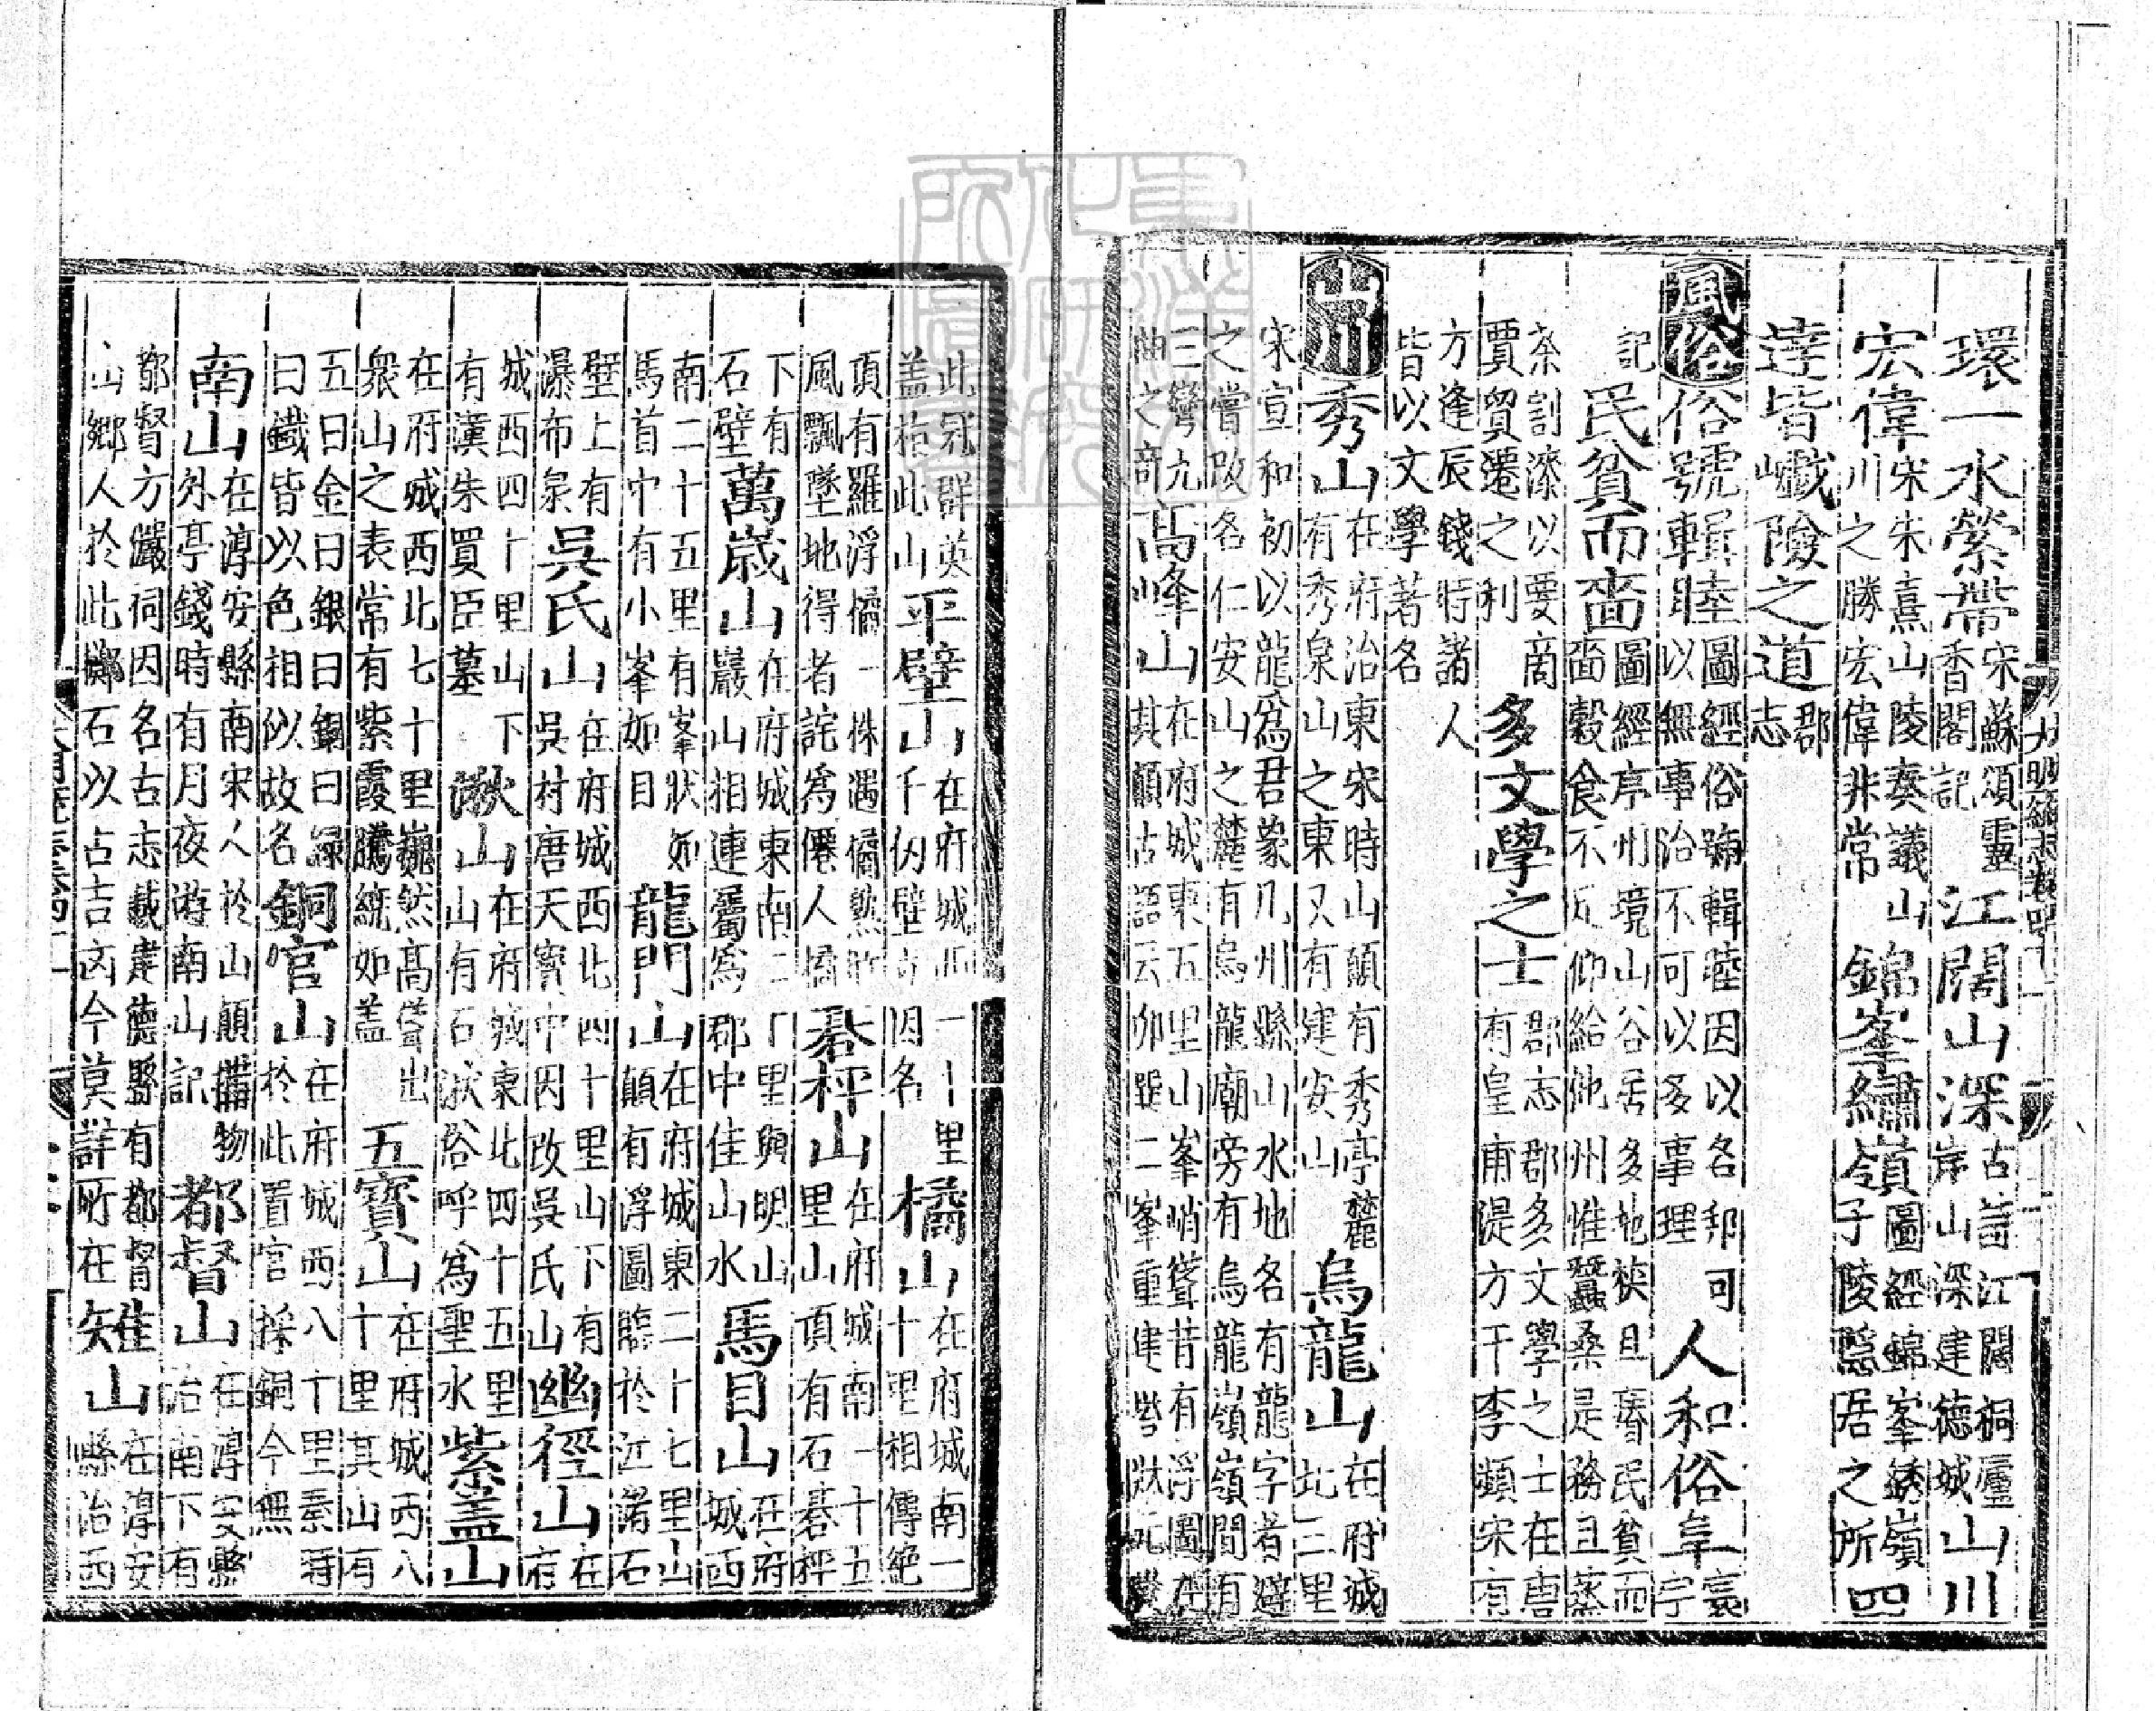 環一水縈帶宋蘇頌靈香閣記江闊山深古詩江闊桐廬岸山深建德城山川
宏偉宋朱熹山陵奏議山川之勝宏偉非常錦峯繡嶺圖經錦峯綉嶺子陵隱居之所四
達皆巇險之道郡志
風俗俗號輯睦圖經俗號輯睦因以名邦可以無事治不可以多事理人和俗阜宋亭
記民貧而嗇圖經序州境山谷居多地狹且瘠民貧而嗇穀食不足仰給他州惟蠶桑是務且蒸
茶割漆以要商賈貿遷之利多文學之士郡志郡多文學之士在唐有皇甫湜方干李頻宋有
方逢辰錢時諸人皆以文學著名
山川秀山在府治東宋時山顛有秀亭麓有秀泉山之東又有建安山烏龍山在府城北三里
宋宣和初以龍爲君象凡州縣山水地名有龍字者避之嘗改名仁安山山之麓有烏龍廟旁有烏龍嶺嶺間有
三彎九曲之奇高峰山在府城東五里山峯峭聳昔有浮圖在其顛古語云卯巽二峯重建
此冠群英蓋指此山平壁山在府城西一十里千仞壁立因名橘山在府城南一十里相傳絶
頂有羅浮橘一株遇橘熟時風飄墜地得者詫爲僊人橘碁枰山在府城南一十五里山頂有石碁枰
下有石壁萬歲山在府城東南二十里與明山巖山相連屬爲郡中佳山水馬目山在府城西
南二十五里有峯狀如馬首中有小峯如目龍門山在府城東二十七里山顛有浮圖臨於江諸石
壁上有瀑布泉吳氏山在府城西北四十里山下有吳村唐天寶中因改吳氏山幽徑山在府
城西四十里山下有漢朱買臣墓湫山在府城東北四十五里山有石湫俗呼爲聖水紫蓋山
在府城西北七十里巍然高聳出衆山之表常有紫霞騰繞如蓋五寶山在府城西八十里其山有
五曰金曰銀曰銅曰錫曰鐵皆以色相似故名銅官山在府城西八十里秦時於此置官採銅今無
南山在淳安縣南宋人於山顛搆物外亭錢時有月夜遊南山記都督山在淳安縣治南下有
都督方儼祠因名古志載建德縣有都督山鄉人於此擲石以占吉凶今莫詳所在雉山在淳安縣治西